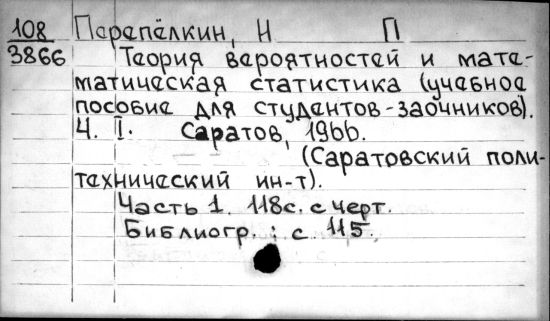 108 Перепёлкин, Н П
3866 Теория вероятностей и мате-
матическая статистика (учебное
пособие для студентов-заочников).
Ч. I. Саратов, 1966.
(Саратовский поли-
технический ин-т).
Часть 1. 118с. с черт.
Библиогр.: с. 115.